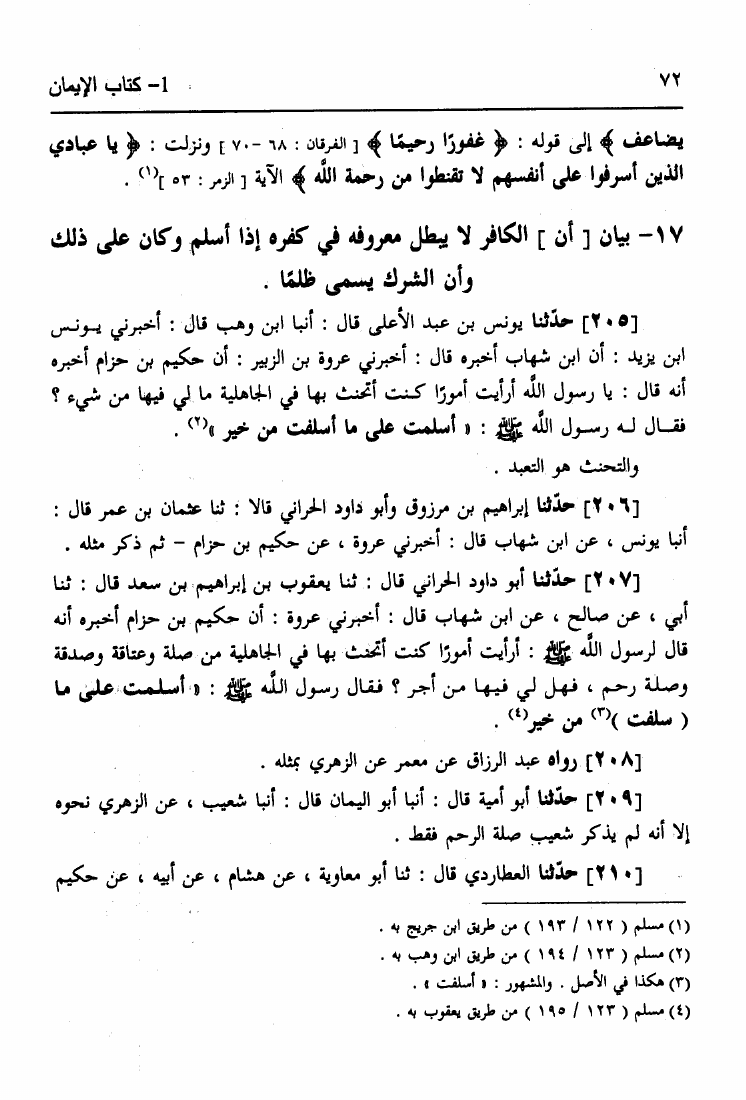 ٧٢
1- كتاب الإيمان
يضاعف ﴾ إلى قوله : ﴿ غفورًا رحيمًا ﴾ [ الفرقان : ٦٨ -٧٠ ] ونزلت : ﴿ يا عبادي
الذين أسرفوا على أنفسهم لا تقنطوا من رحمة اللَّه ﴾ الآية [ الزمر : ٥٣ ](١) .
١٧- بيان [ أن ] الكافر لا يبطل معروفه في كفره إذا أسلم وكان على ذلك
وأن الشرك يسمى ظلمًا .
[٢٠٥] حدّثنا يونس بن عبد الأعلى قال : أنبا ابن وهب قال : أخبرني يونس
ابن يزيد : أن ابن شهاب أخبره قال : أخبرني عروة بن الزبير : أن حكيم بن حزام أخبره
أنه قال : يا رسول اللَّه أرأيت أمورًا كنت أتحنث بها في الجاهلية ما لي فيها من شيء ؟
فقال له رسول اللَّه ﷺ : « أسلمت على ما أسلفت من خير »(٢) .
والتحنث هو التعبد .
[٢٠٦] حدّثنا إبراهيم بن مرزوق وأبو داود الحراني قالا : ثنا عثمان بن عمر قال :
أنبا يونس ، عن ابن شهاب قال : أخبرني عروة ، عن حكيم بن حزام – ثم ذكر مثله .
[٢٠٧] حدّثنا أبو داود الحراني قال : ثنا يعقوب بن إبراهيم بن سعد قال : ثنا
أبي ، عن صالح ، عن ابن شهاب قال : أخبرني عروة : أن حكيم بن حزام أخبره أنه
قال لرسول اللَّه ﷺ : أرأيت أمورًا كنت أتحنث بها في الجاهلية من صلة وعتاقة وصدقة
وصلة رحم ، فهل لي فيها من أجر ؟ فقال رسول اللَّه ﷺ : « أسلمت على ما
( سلفت )(٣) من خير(٤) .
[٢٠٨] رواه عبد الرزاق عن معمر عن الزهري بمثله .
[٢٠٩] حدّثنا أبو أمية قال : أنبا أبو اليمان قال : أنبا شعيب ، عن الزهري نحوه
إلا أنه لم يذكر شعيب صلة الرحم فقط .
[٢١٠] حدّثنا العطاردي قال : ثنا أبو معاوية ، عن هشام ، عن أبيه ، عن حكيم
(١) مسلم ( ١٢٢ / ١٩٣ ) من طريق ابن جريج به .
(٢) مسلم ( ١٢٣ / ١٩٤ ) من طريق ابن وهب به .
(٣) هكذا في الأصل . والمشهور : « أسلفت » .
(٤) مسلم ( ١٢٣ / ١٩٥ ) من طريق يعقوب به .